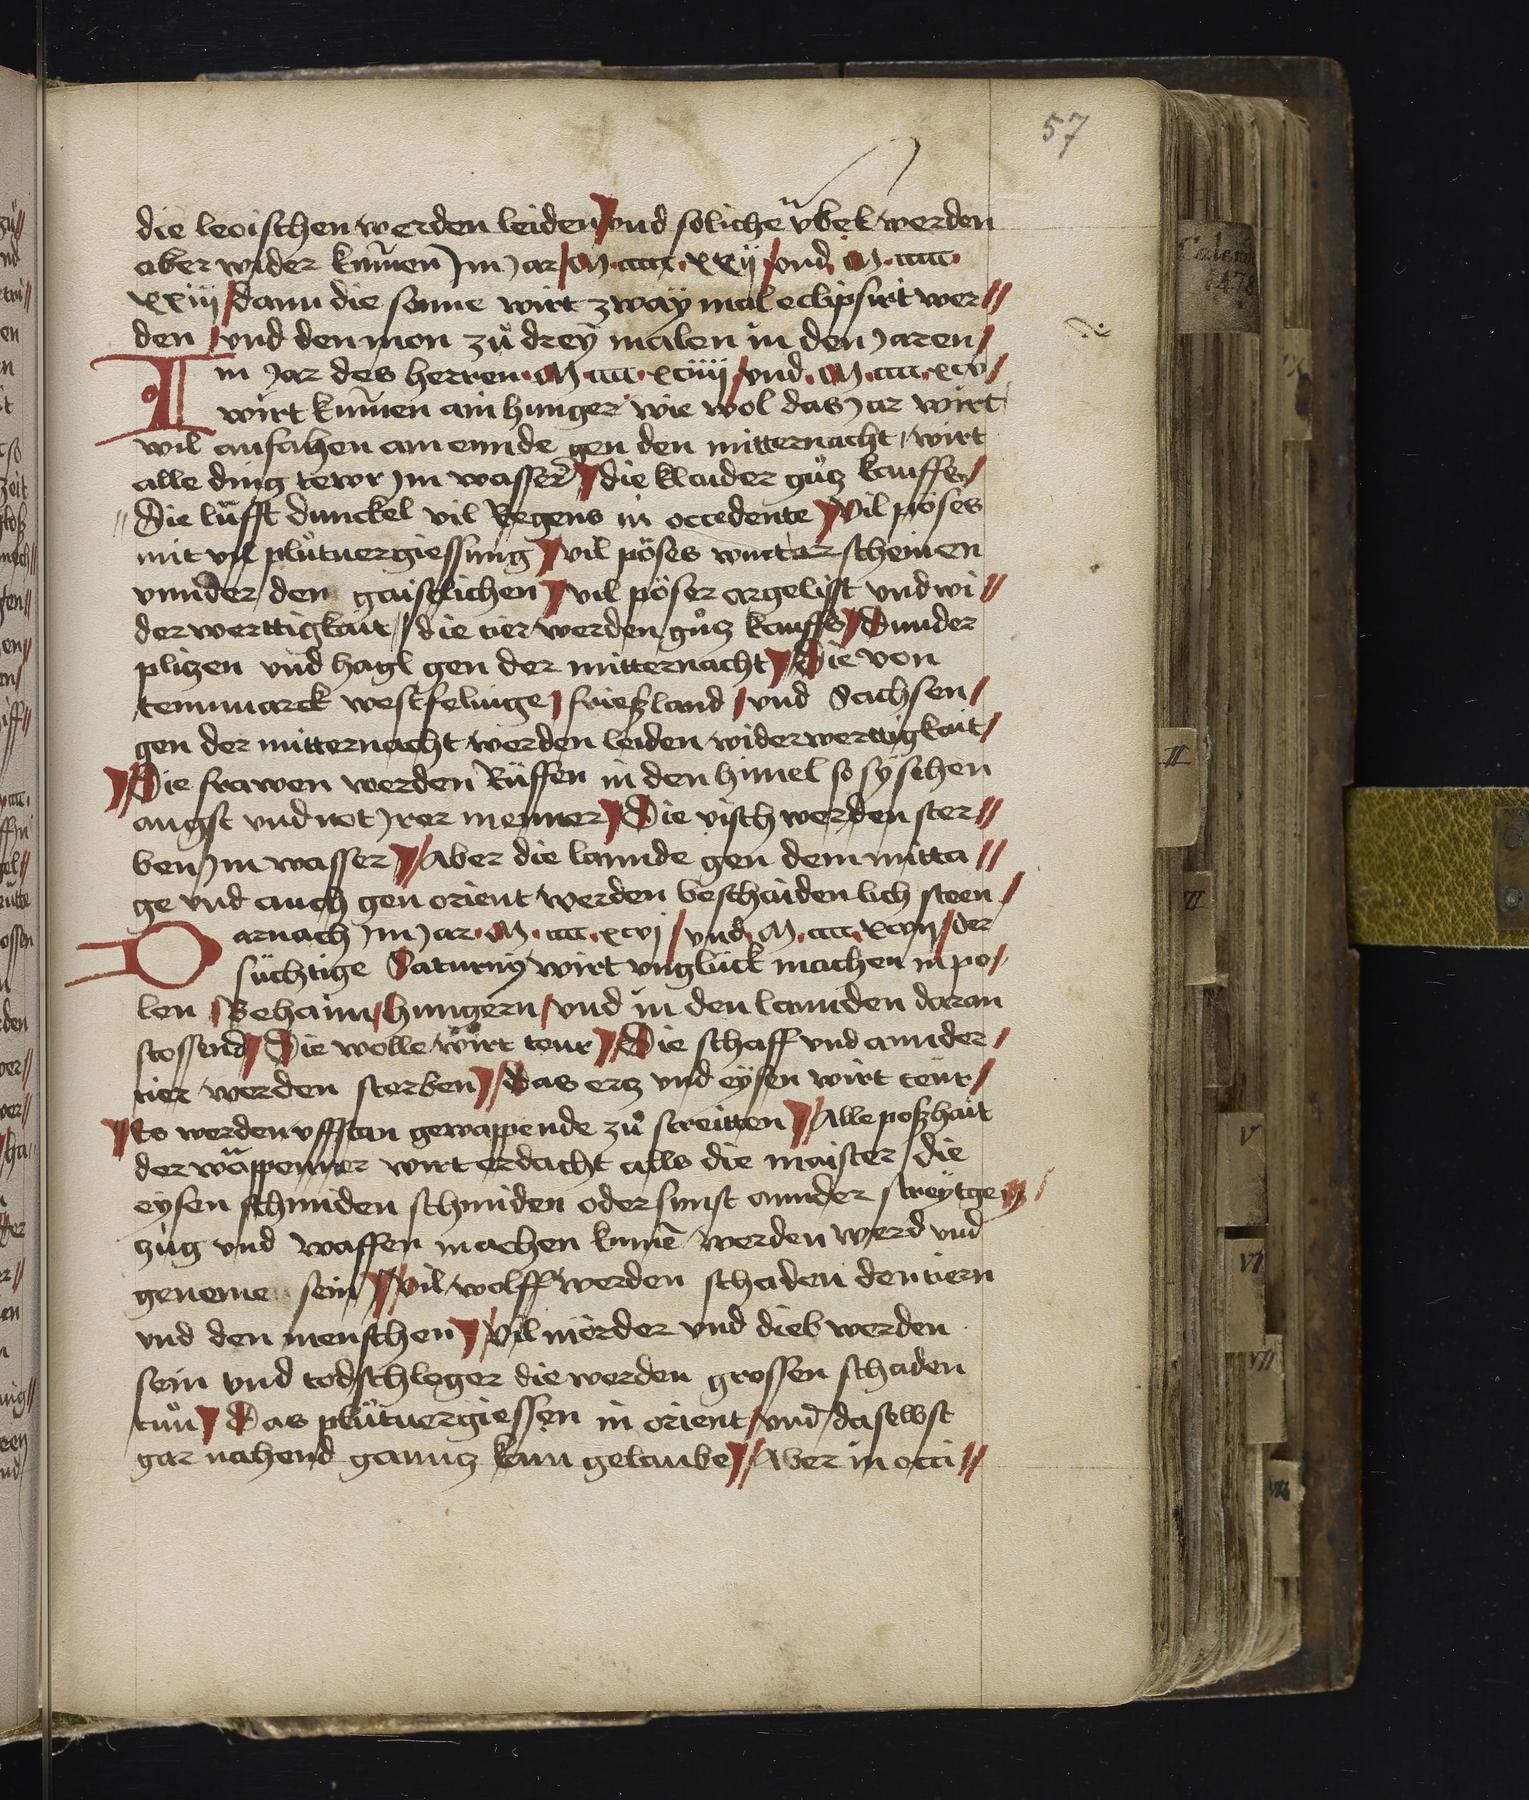 57
die leoischen werden leiden / und soliche übel werden
aber wider kumen Im Jar / M. cccc. xxij / vnd. M. cccc.
xxiij / dann die sonne wirt zway mal eclipsirt wer//
den / vnd den mon zů drey malen in den Jaren /
Im Jar des herren. M. cccc. xciiij / vnd. M. cccc. xcv /
wirt kumen ain hunger wie wol das Jar wirt
wil anfahen am ennde gen den mitternacht / wirt
alle ding tewr Im wasser / die klaider gůtz kauffes /
Die lüfft dunckel vil Regens in occedente / Vil pöses
mit vil plůtuergiessung / vil pöses wirt ar scheinen
vnnder den gaistlichen / vil pöser argelisst vnd wi//
derwerttigkait / die tier werden gůtz kauffs / Dunder
plitzen vnd hagl gen der mitternacht / Die von
temmarck westfelinge / frießland / vnd Sachsen /
gen der mitternacht werden leiden widerwerttigkait /
Die frawen werden Rüffen in den himel so sy sehen
angst vnd not Irer menner / Die visch werden ster//
ben Im wasser / Aber die lannde gen dem mitta//
ge vnd auch gen orient werden beschaidenlich steen /
Darnach Im Jar. M. cccc. xcvj / vnd. M. cccc. xcvij / der
süchtige Saturny wirt vnglück machen in po/
len / Behaim / hungern / vnd in den lannden daran
stossend / Die wolle wirt teur / Die schaff vnd annder /
tier werden sterben / Das ertz vnd eysen wirt teur /
Es werden vffstan gewappende zů streitten / Alle poßhait
der wäppenner wirt erdacht alls die maister / die
eysen schmiden schmiden oder sunst annder streytge//
zug vnd waffen machen kumē werden werd vnd
geneme sein / Vil wolff werden schaden den tiern
vnd den menschen / Vil mörder vnd dieb werden
sein vnd todschleger die werden grossen schaden
tůn / Das plůtuergiessen in orient / vnd daselbst
gar nahend ganntz kain gelaube / Aber in occi//
Calend
1478
II
III
V
VI
VII
VIII